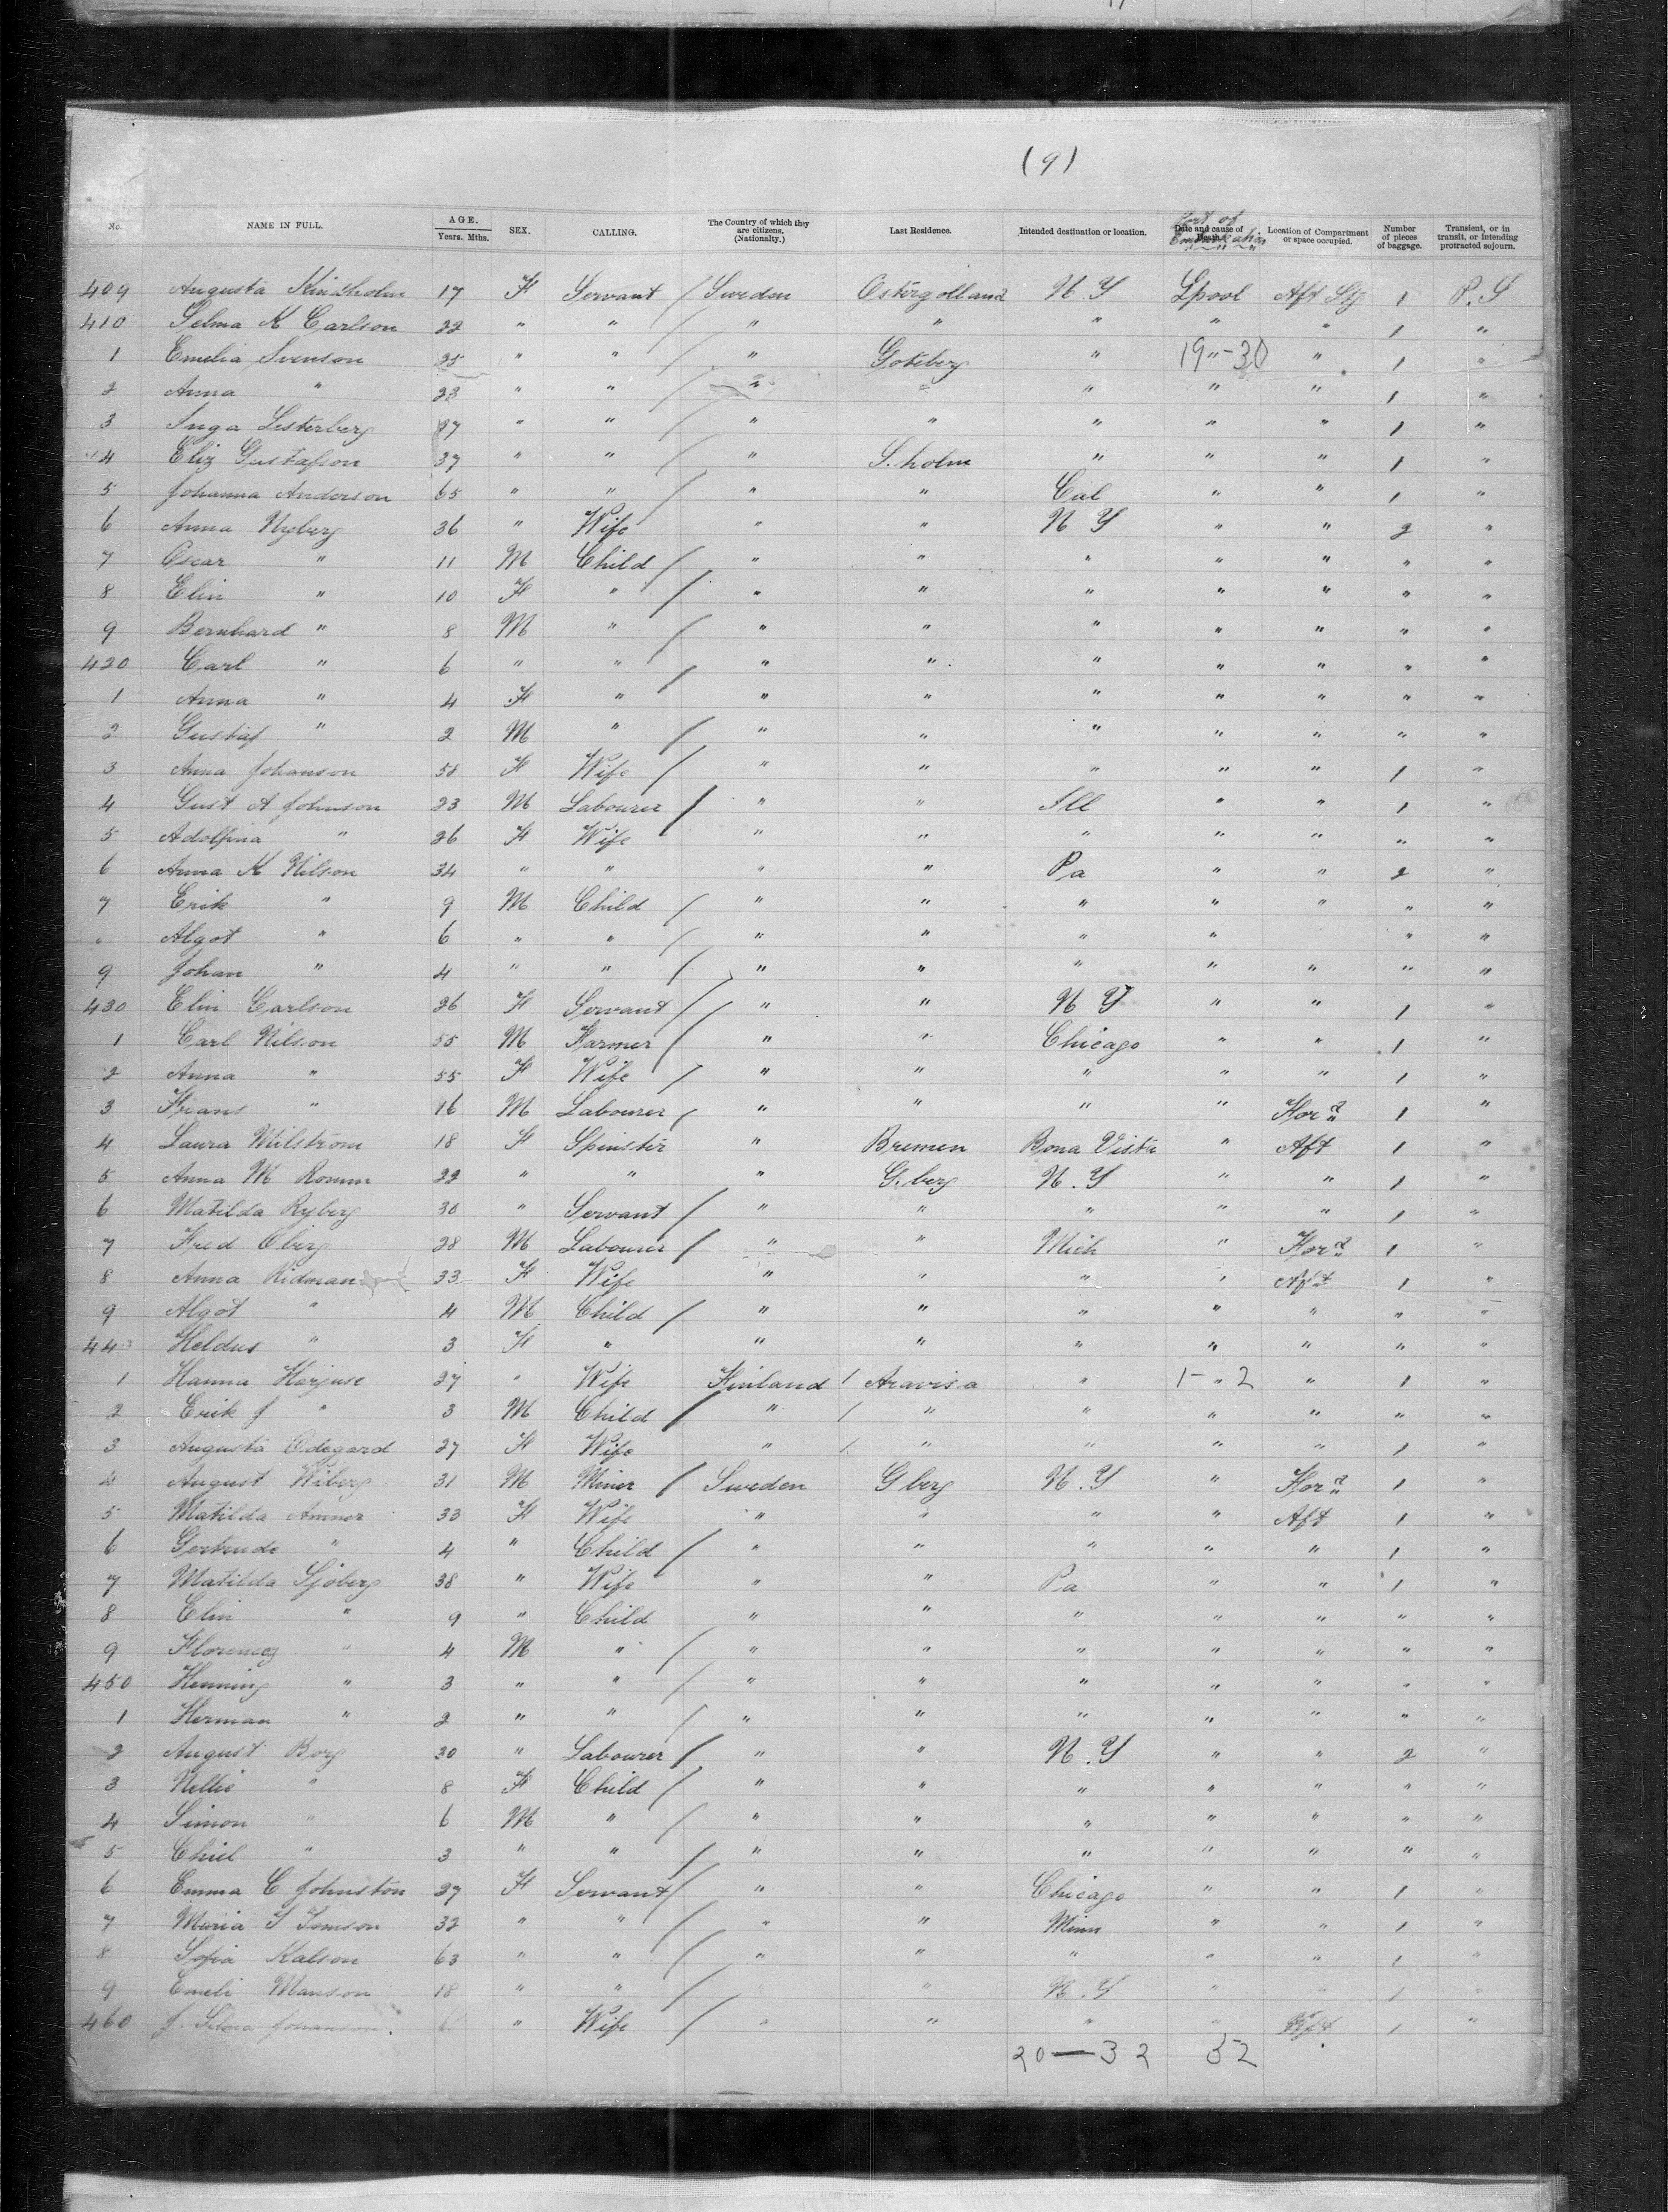 (9)
No. NAME IN FULL. AGE. Years. Mths. SEX. CALLING. The Country of which they are citizens. (Nationality.) Last Residence. Intended destination or location. Date and cause of Death. Port of Embarkation Location of Compartment or space occupied. Number of pieces of baggage. Transient, or in transit, or intending protracted sojourn.
409 Augusta Kindholm 17 F Servant / Sweden Ostergolland N Y Lpool Aft Stg 1 P.S
410 Selma K Carlson 22 " " / " " " " " 1 "
1 Emelia Svenson 25 " " / " Goteberg " 19"-30 " 1 "
2 Anna " 23 " " / " " " " " 1 "
3 Inga Lesterberg 27 " " / " " " " " 1 "
4 Eliz Gustafson 37 " " / " S.holm " " " 1 "
5 Johanna Anderson 65 " " / " " Cal " " 1 "
6 Anna Nyberg 36 " Wife / " " N Y " " 2 "
7 Oscar " 11 M Child / " " " " " " "
8 Elin " 10 F " / " " " " " " "
9 Bernhard " 8 M " / " " " " " " "
420 Carl " 6 " " / " " " " " " "
1 Anna " 4 F " " " " " " " "
2 Gustaf " 2 M " / " " " " " " "
3 Anna Johanson 58 F Wife / " " " " " 1 "
4 Gust A Johnson 23 M Labourer / " " Ill " " 1 "
5 Adolfina " 26 F Wife " " " " " " "
6 Anna K Nilson 34 " " " " Pa " " 2 "
7 Erik " 9 M Child / " " " " " " "
" Algot " 6 " " / " " " " " "
9 Johan " 4 " " / " " " " " " "
430 Elin Carlson 26 F Servant / " " N Y " " 1 "
1 Carl Nilson 55 M Farmer / " " Chicago " " 1 "
2 Anna " 55 F Wife / " " " " " 1 "
3 Frans " 16 M Labourer / " " " " For'd 1 "
4 Laura Wilstrom 18 F Spinster " Bremen Bona Vista " Aft 1 "
5 Anna M Romm 22 " " " G.berg N.Y " " 1 "
6 Matilda Ryberg 30 " Servant / " " " " " 1 "
7 Fred Oberg 28 M Labourer / " " Mich " For'd 1 "
8 Anna Ridman 33 F Wife " " " " Aft 1 "
9 Algot " 4 M Child / " " " " " " "
440 Heldus " 3 F " " " " " " " "
1 Hanna Harjuse 27 " Wife Finland / Aravisa " 1-"2 " 1 "
2 Erik J " 3 M Child / " / " " " " " "
3 Augusta Odegard 27 F Wife " / " " " " 1 "
4 August Wiberg 31 M Miner / Sweden G berg N.Y " For'd 1 "
5 Matilda Ammor 33 F Wife " " " " Aft 1 "
6 Gertrude " 4 " Child / " " " " " 1 "
7 Matilda Sjoberg 38 " Wife " " Pa " " 1 "
8 Elin " 9 " Child " " " " " " "
9 Florencez " 4 M " / " " " " " " "
450 Henning " 3 " " / " " " " " " "
1 Herman " 2 " " / " " " " " " "
2 August Borg 30 " Labourer / " " N.Y " " 2 "
3 Nellie " 8 F Child / " " " " " " "
4 Simon " 6 M " / " " " " " " "
5 Chiel " 3 " " / " " " " " " "
6 Emma C Johnston 27 F Servant / " " Chicago " " 1 "
7 Maria S Tomson 32 " " / " " Minn " " 1 "
8 Sofia Kalson 63 " " / " " " " " 1 "
9 Emeli Manson 18 " " / " " N.Y " " 1 "
460 J. Selma Johanson. " Wife / " " " " Aft 1 "
20 — 32 52